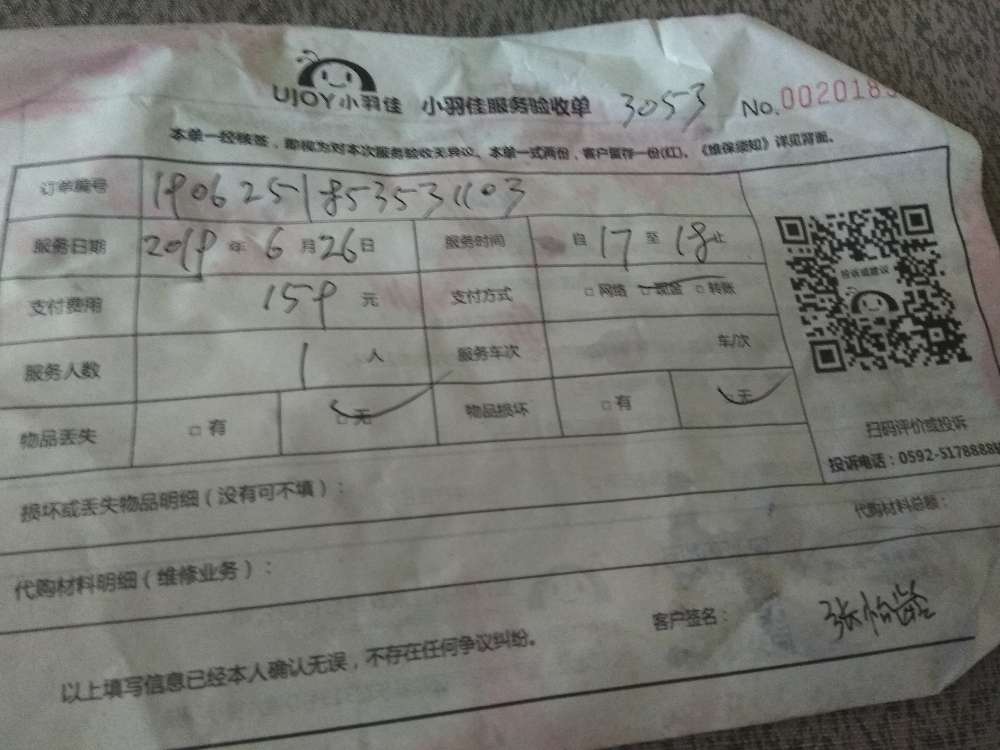 UJOY小羽佳 小羽佳服务验收单 3053 No.0020185
本单一经核签，即视为对本次服务验收无异议。本单一式两份，客户留存一份(红)。《维保须知》详见背面。
订单编号 1906251853531103
服务日期 2019 年 6 月 26 日 服务时间 自 17 至 18 止
支付费用 159 元 支付方式 □ 网络 □ 现金 □ 转账
服务人数 1 人 服务车次 车/次
物品丢失 □ 有 □ 无 物品损坏 □ 有 □ 无
投诉或建议
扫码评价或投诉
投诉电话：0592-5178888
损坏或丢失物品明细（没有可不填）：
代购材料明细（维修业务）： 代购材料总额：
以上填写信息已经本人确认无误，不存在任何争议纠纷。 客户签名： 张怡龄